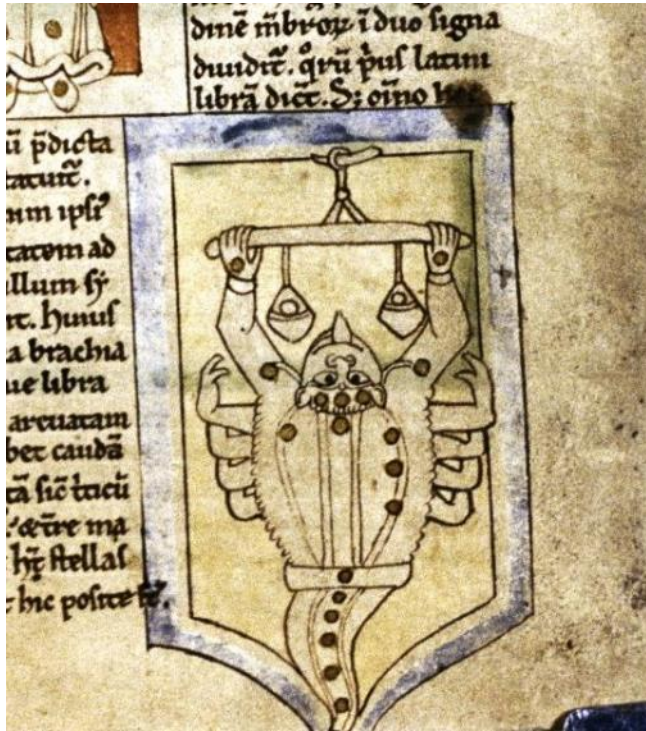 dinē m̄broꝝ ī duo signa
diuidit̄. q̊ꝝ p̄us latini
librā dict̄. S; oīno
ū p̄dicta
tatuit̄.
um ipsiꝰ
tatem ad
llum sy
it. huius
a brachia
ue libra
arcuatam
bet caudā
tā sic̄
ma
stellas
hic posite